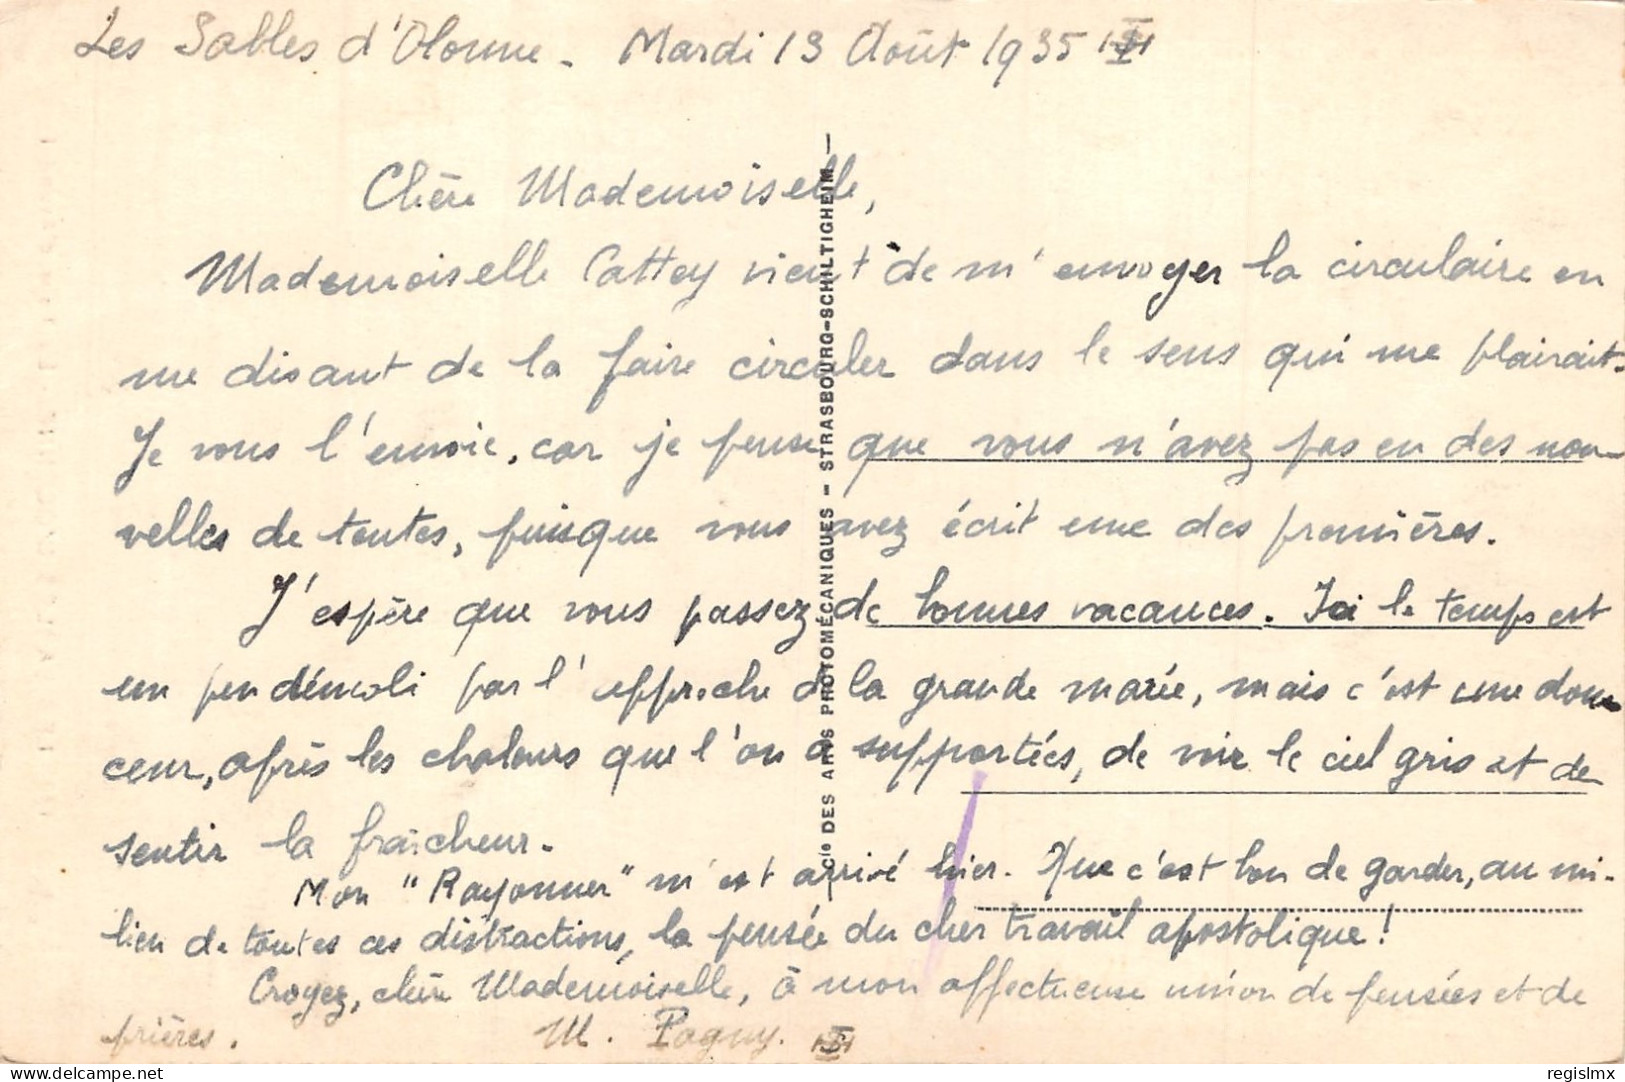 Les Sables d'Olonne - Mardi 13 Août 1935
Chère Mademoiselle,
Mademoiselle Cattey vient de m'envoyer la circulaire en
me disant de la faire circuler dans le sens qui me plairait.
Je vous l'envoie, car je pense que vous n'avez pas eu des nou-
velles de toutes, puisque vous avez écrit une des premières.
J'espère que vous passez de bonnes vacances. Ici le temps est
un peu démoli par l'approche de la grande marée, mais c'est une dou-
ceur, après les chaleurs que l'on a supportées, de voir le ciel gris et de
sentir la fraîcheur.
Mon "Rayonner" m'est arrivé hier. Que c'est bon de garder, au mi-
lieu de toutes ces distractions, la pensée du cher travail apostolique!
Croyez, chère Mademoiselle, à mon affectueuse union de pensées et de
prières. M. Pagny.
Cie DES ARTS PHOTOMÉCANIQUES - STRASBOURG-SCHILTIGHEIM -
www.delcampe.net
regislmx